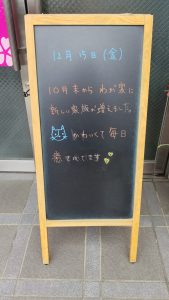 12月15日(金)
10月末から わが家に
新しい家族が増えました。
かわいくて毎日
癒されてます